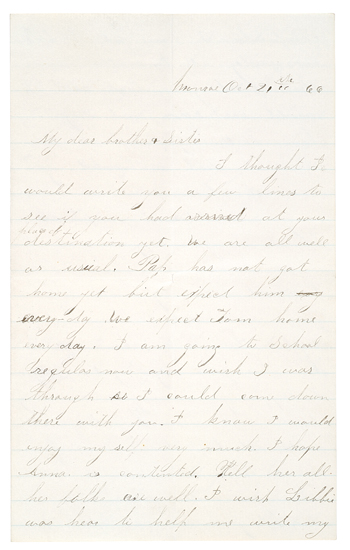 Monroe Oct 21st 66
My dear brother & Sister
I thought I
would write you a few lines to
see if you had arrived at your
destination yet. We are all well
as usual. Pap has not got
home yet but expect him
every day We expect Tom home
every day. I am going to School
regular now and wish I was
through so I could come down
there with you. I know I would
enjoy my self very much. I hope
Anna is contented. Tell her all
her folks are well. I wish Libbie
was hear to help me write my